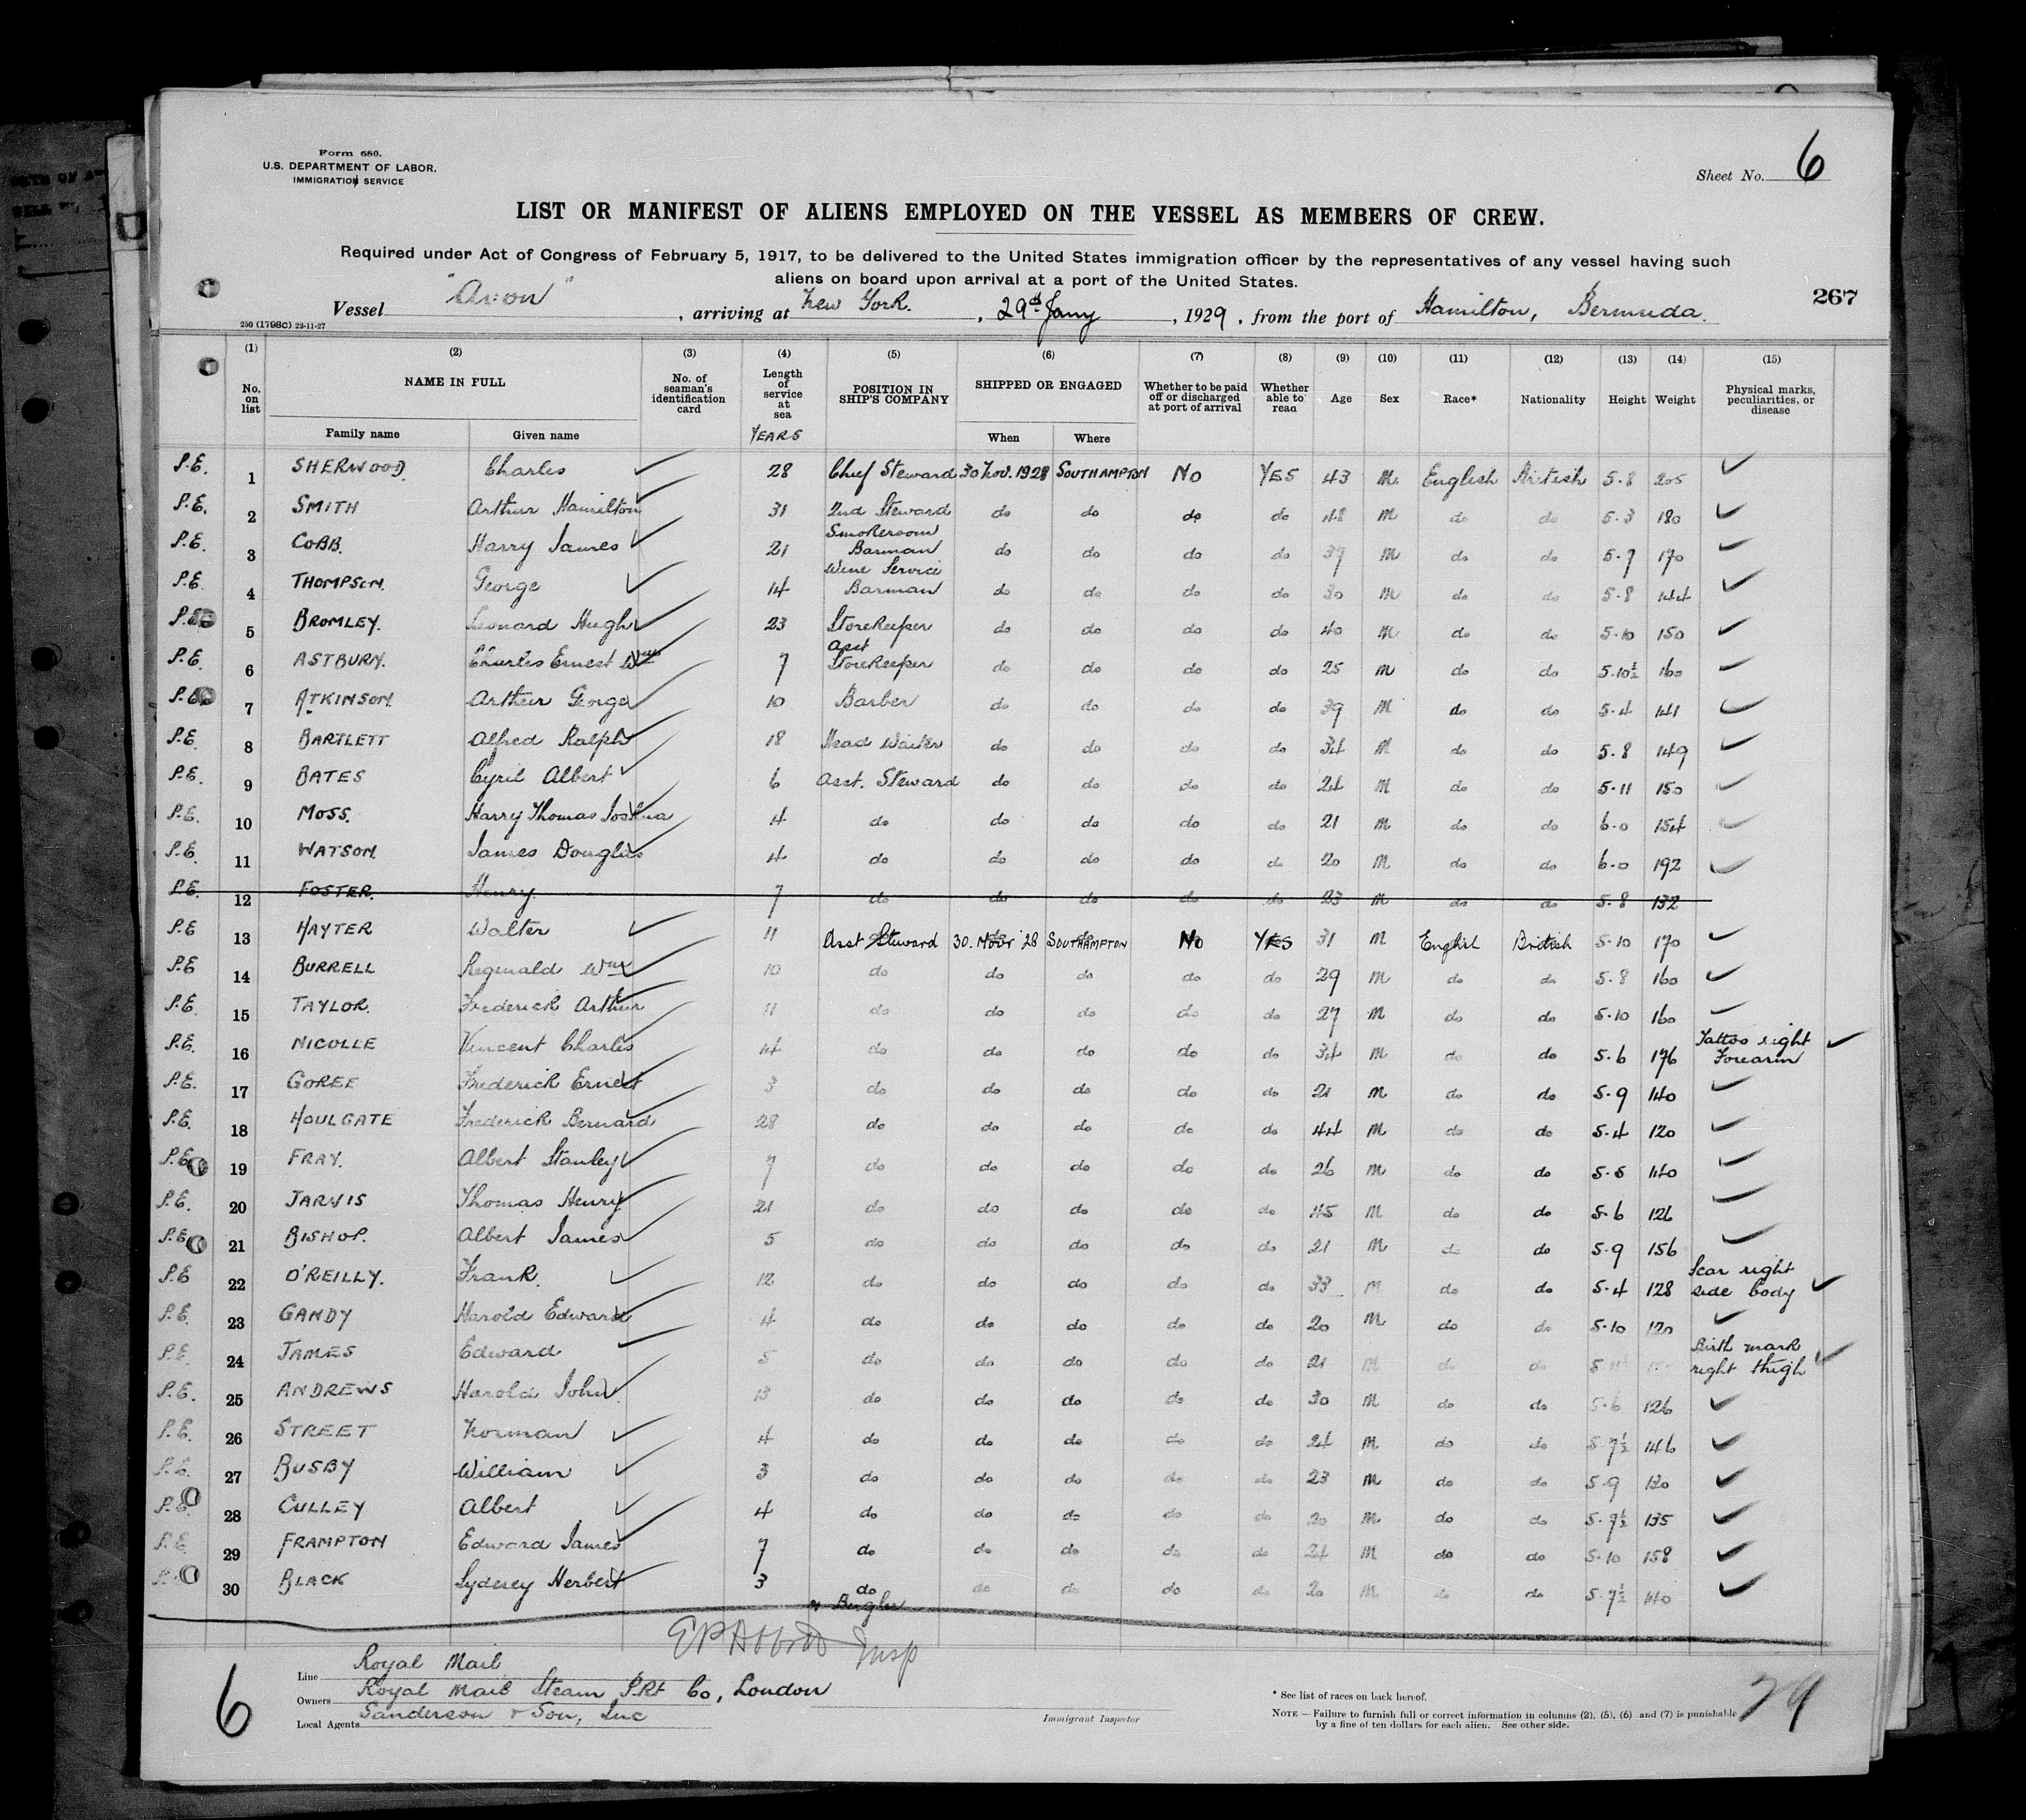 Form 680.
U.S. DEPARTMENT OF LABOR.
IMMIGRATION SERVICE
Sheet No. 6
LIST OR MANIFEST OF ALIENS EMPLOYED ON THE VESSEL AS MEMBERS OF CREW.
Required under Act of Congress of February 5, 1917, to be delivered to the United States immigration officer by the representatives of any vessel having such
aliens on board upon arrival at a port of the United States.
267
Vessel "Avon", arriving at New York., 29th Jany, 1929, from the port of Hamilton, Bermuda.
250 (1798C) 22-11-27
(1) (2) (3) (4) (5) (6) (7) (8) (9) (10) (11) (12) (13) (14) (15)
No. on list NAME IN FULL Family name Given name No. of seaman's identification card Length of service at sea YEARS POSITION IN SHIP'S COMPANY SHIPPED OR ENGAGED When Where Whether to be paid off or discharged at port of arrival Whether able to read Age Sex Race* Nationality Height Weight Physical marks, peculiarities, or disease
P.E. 1 SHERWOOD Charles 28 Chief Steward 30 Nov. 1928 SOUTHAMPTON No YES 43 M. English British 5.8 205
P.E. 2 SMITH Arthur Hamilton 31 2nd Steward do do do do 48 M do do 5.3 180
P.E. 3 COBB. Harry James 21 Smokeroom Barman do do do do 39 M do do 5.7 170
P.E. 4 THOMPSON. George 14 Wine Service Barman do do do do 30 M do do 5.8 144
P.E. 5 BROMLEY. Leonard Hugh 23 Storekeeper do do do do 40 M do do 5.10 150
P.E. 6 ASTBURY. Charles Ernest Wm 7 Asst Storekeeper do do do do 25 M do do 5.10½ 160
P.E. 7 ATKINSON. Arthur George 10 Barber do do do do 39 M do do 5.4 141
P.E. 8 BARTLETT Alfred Ralph 18 Head Waiter do do do do 34 M do do 5.8 149
P.E. 9 BATES Cyril Albert 6 Asst. Steward do do do do 24 M do do 5.11 150
P.E. 10 MOSS. Harry Thomas Joshua 4 do do do do do 21 M do do 6.0 154
P.E. 11 WATSON. James Douglas 4 do do do do do 20 M do do 6.0 192
P.E. 12 FOSTER. Henry. 7 do do do do do 23 M do do 5.8 132
P.E 13 HAYTER Walter 11 Asst Steward 30. Novr '28 SOUTHAMPTON No YES 31 M English British 5.10 170
P.E 14 BURRELL Reginald Wm 10 do do do do do 29 M do do 5.8 160
P.E. 15 TAYLOR. Frederick Arthur 11 do do do do do 27 M do do 5.10 160
P.E. 16 NICOLLE Vincent Charles 14 do do do do do 34 M do do 5.6 176 Tattoo right Forearm
P.E. 17 GOREE Frederick Ernest 3 do do do do do 21 M do do 5.9 140
P.E. 18 HOULGATE Frederick Bernard 28 do do do do do 44 M do do 5.4 120
P.E. 19 FRAY. Albert Stanley 7 do do do do do 26 M do do 5.5 140
P.E. 20 JARVIS Thomas Henry 21 do do do do do 45 M do do 5.6 126
P.E. 21 BISHOP. Albert James 5 do do do do do 21 M do do 5.9 156
P.E 22 O'REILLY. Frank. 12 do do do do do 33 M do do 5.4 128 Scar right side body
P.E. 23 GANDY Harold Edward 4 do do do do do 20 M do do 5.10 120
P.E. 24 JAMES Edward 5 do do do do do 21 M do do Birth mark right thigh
P.E. 25 ANDREWS Harold John 13 do do do do do 30 M do do 5.6 126
P.E. 26 STREET Norman 4 do do do do do 24 M do do 5.7½ 146
P.E. 27 BUSBY William 3 do do do do do 23 M do do 5.9 130
P.E. 28 CULLEY Albert 4 do do do do do 20 M do do 5.7½ 135
P.E. 29 FRAMPTON Edward James 7 do do do do do 24 M do do 5.10 158
30 BLACK Sydney Herbert 3 do & Bugler do do do do 20 M do do 5.7½ 140
Insp
Line Royal Mail
Owners Royal Mail Steam Pkt Co, London
Local Agents Sanderson & Son, Inc
6
Immigrant Inspector
* See list of races on back hereof.
NOTE — Failure to furnish full or correct information in columns (2), (5), (6) and (7) is punishable
by a fine of ten dollars for each alien. See other side.
29